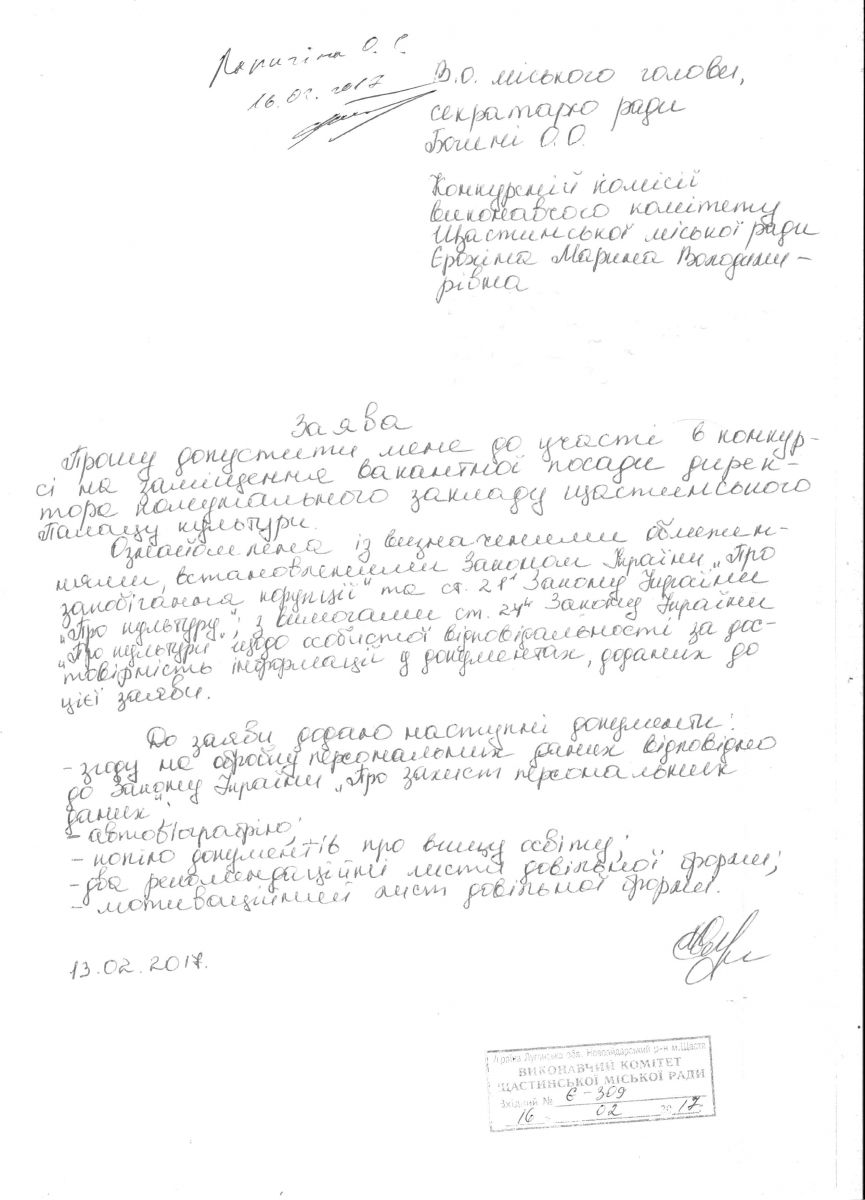 Ларичіна О. С.
16.02.2017
В.О. міського голови,
секретарю ради
Бочені О.О.
Конкурсній комісії
виконавчого комітету
Щастинської міської ради
Єрохіна Марина Володими-
рівна
Заява
Прошу допустити мене до участі в конкур-
сі на заміщення вакантної посади дирек-
тора комунального закладу щастинського
Палацу культури.
Ознайомлена із визначеними обмежен-
нями, встановленими Законом України „Про
запобігання корупції" та ст. 21¹ Закону України
„Про культуру"; з вимогами ст. 21⁴ Закону України
„Про культури" щодо особистої відповідальності за дос-
товірність інформації у документах, доданих до
цієї заяви.
До заяви додано наступні документи:
- згоду на обробку персональних даних відповідно
до Закону України „Про захист персональних
даних";
- автобіографію;
- копію документів про вищу освіту;
- два рекомендаційні листи довільної форми;
- мотиваційний лист довільної форми.
13.02.2017.
Україна Луганська обл. Новоайдарський р-н м.Щастя
ВИКОНАВЧИЙ КОМІТЕТ
ЩАСТИНСЬКОЇ МІСЬКОЇ РАДИ
Вхідний № Є-309
16 02 2017